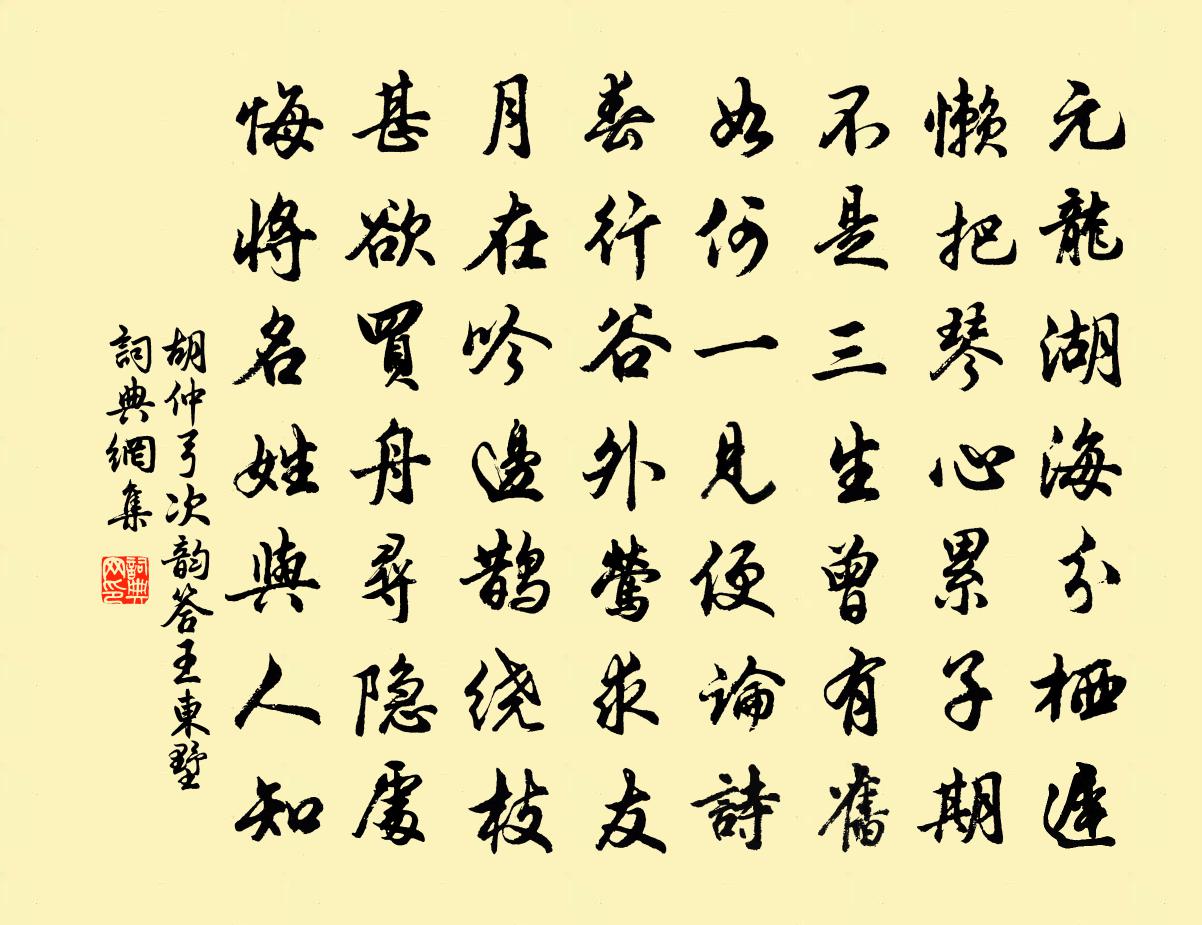 元龍湖海分栖遲
懶把琴心累子期
不是三生曾有舊
如何一見便論詩
春行谷外鶯求友
月在吟邊鵲绕枝
甚欲買舟尋隐處
悔將名姓與人知
胡仲弓次韵答王東墅
詞典網集
詞典網印